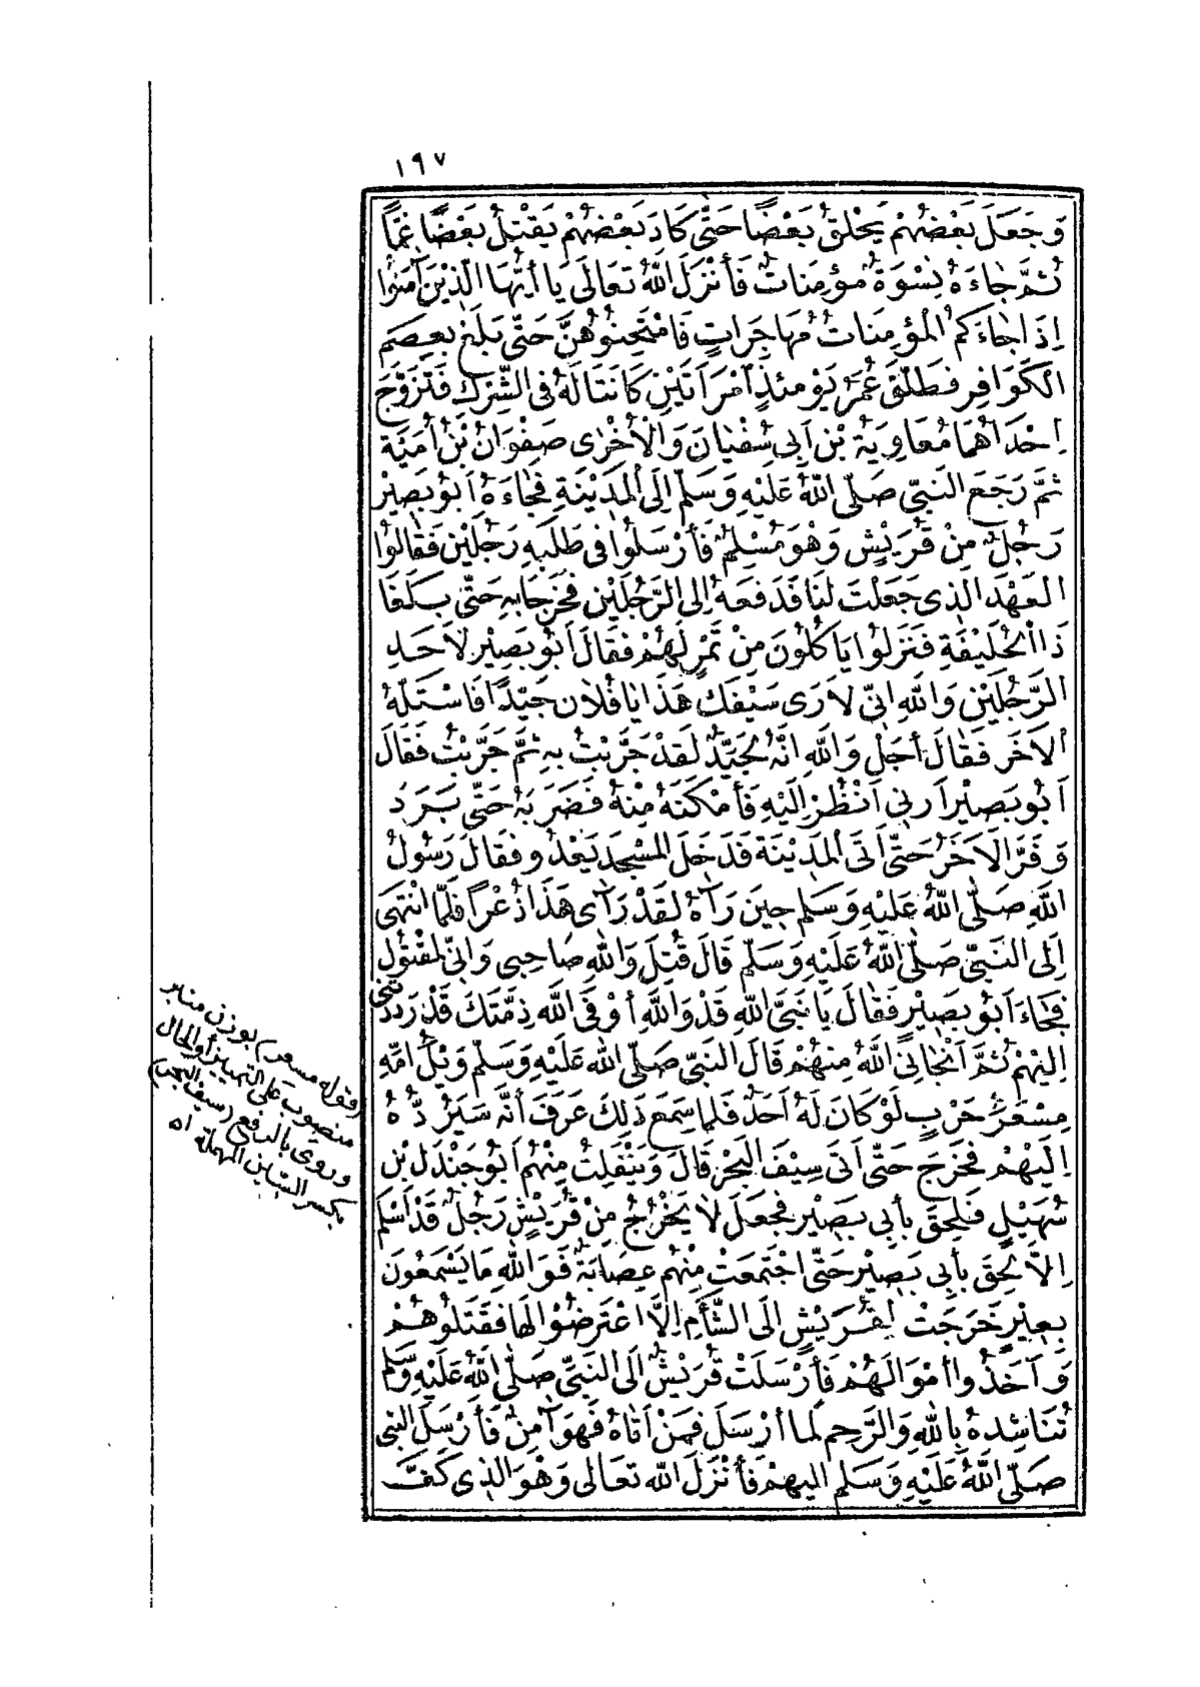 ١٩٧
وَجَعَلَ بَعْضُهُمْ يَحْلِقُ بَعْضًا حَتَّى كَادَ بَعْضُهُمْ يَقْتُلُ بَعْضًا غَمًّا
ثُمَّ جَاءَهُ نِسْوَةٌ مُؤْمِنَاتٌ فَأَنْزَلَ اللّٰهُ تَعَالَى يَا أَيُّهَا الَّذِيْنَ آمَنُوا
إِذَا جَاءَكُمُ الْمُؤْمِنَاتُ مُهَاجِرَاتٍ فَامْتَحِنُوهُنَّ حَتَّى بَلَغَ بِعِصَمِ
الْكَوَافِرِ فَطَلَّقَ عُمَرُ يَوْمَئِذٍ امْرَأَتَيْنِ كَانَتَا لَهُ فِى الشِّرْكِ فَتَزَوَّجَ
إِحْدَاهُمَا مُعَاوِيَةُ بْنُ أَبِى سُفْيَانَ وَالْأُخْرٰى صَفْوَانُ بْنُ أُمَيَّةَ
ثُمَّ رَجَعَ النَّبِىُّ صَلَّى اللّٰهُ عَلَيْهِ وَسَلَّمَ إِلَى الْمَدِيْنَةِ فَجَاءَهُ أَبُو بَصِيْرٍ
رَجُلٌ مِنْ قُرَيْشٍ وَهْوَ مُسْلِمٌ فَأَرْسَلُوا فِى طَلَبِهِ رَجُلَيْنِ فَقَالُوا
الْعَهْدَ الَّذِى جَعَلْتَ لَنَا فَدَفَعَهُ إِلَى الرَّجُلَيْنِ فَخَرَجَا بِهِ حَتَّى بَلَغَا
ذَا الْحُلَيْفَةِ فَنَزَلُوا يَأْكُلُونَ مِنْ تَمْرٍ لَهُمْ فَقَالَ أَبُو بَصِيْرٍ لِأَحَدِ
الرَّجُلَيْنِ وَاللّٰهِ إِنِّى لَأَرَى سَيْفَكَ هَذَا يَا فُلَانُ جَيِّدًا فَاسْتَلَّهُ
الْآخَرُ فَقَالَ أَجَلْ وَاللّٰهِ إِنَّهُ لَجَيِّدٌ لَقَدْ جَرَّبْتُ بِهِ ثُمَّ جَرَّبْتُ فَقَالَ
أَبُو بَصِيْرٍ أَرِنِى أَنْظُرْ إِلَيْهِ فَأَمْكَنَهُ مِنْهُ فَضَرَبَهُ حَتَّى بَرَدَ
وَفَرَّ الْآخَرُ حَتَّى أَتَى الْمَدِيْنَةَ فَدَخَلَ الْمَسْجِدَ يَعْدُو فَقَالَ رَسُولُ
اللّٰهِ صَلَّى اللّٰهُ عَلَيْهِ وَسَلَّمَ حِيْنَ رَآهُ لَقَدْ رَآى هَذَا ذُعْرًا فَلَمَّا انْتَهَى
إِلَى النَّبِىِّ صَلَّى اللّٰهُ عَلَيْهِ وَسَلَّمَ قَالَ قُتِلَ وَاللّٰهِ صَاحِبِى وَإِنِّى لَمَقْتُولٌ
فَجَاءَ أَبُو بَصِيْرٍ فَقَالَ يَا نَبِىَّ اللّٰهِ قَدْ وَاللّٰهِ أَوْفَى اللّٰهُ ذِمَّتَكَ قَدْ رَدَدْتَنِى
إِلَيْهِمْ ثُمَّ أَنْجَانِى اللّٰهُ مِنْهُمْ قَالَ النَّبِىُّ صَلَّى اللّٰهُ عَلَيْهِ وَسَلَّمَ وَيْلُ أُمِّهِ
مِسْعَرُ حَرْبٍ لَوْ كَانَ لَهُ أَحَدٌ فَلَمَّا سَمِعَ ذَلِكَ عَرَفَ أَنَّهُ سَيَرُدُّهُ
إِلَيْهِمْ فَخَرَجَ حَتَّى أَتَى سِيْفَ الْبَحْرِ قَالَ وَيَنْفَلِتُ مِنْهُمْ أَبُو جَنْدَلِ بْنُ
سُهَيْلٍ فَلَحِقَ بِأَبِى بَصِيْرٍ فَجَعَلَ لَا يَخْرُجُ مِنْ قُرَيْشٍ رَجُلٌ قَدْ أَسْلَمَ
إِلَّا لَحِقَ بِأَبِى بَصِيْرٍ حَتَّى اجْتَمَعَتْ مِنْهُمْ عِصَابَةٌ فَوَاللّٰهِ مَا يَسْمَعُونَ
بِعِيْرٍ خَرَجَتْ لِقُرَيْشٍ إِلَى الشَّأْمِ إِلَّا اعْتَرَضُوْا لَهَا فَقَتَلُوهُمْ
وَآخَذُوا أَمْوَالَهُمْ فَأَرْسَلَتْ قُرَيْشٌ إِلَى النَّبِىِّ صَلَّى اللّٰهُ عَلَيْهِ وَسَلَّمَ
تُنَاشِدُهُ بِاللّٰهِ وَالرَّحِمِ لَمَّا أَرْسَلَ فَمَنْ أَتَاهُ فَهْوَ آمِنٌ فَأَرْسَلَ النَّبِى
صَلَّى اللّٰهُ عَلَيْهِ وَسَلَّمَ إِلَيْهِمْ فَأَنْزَلَ اللّٰهُ تَعَالَى وَهْوَ الَّذِى كَفَّ
(قوله مسعر) بوزن منبر
منصوب على التمييز أو الحال
وروى بالرفع (سيف البحر)
بكسر السّين المهملة اه